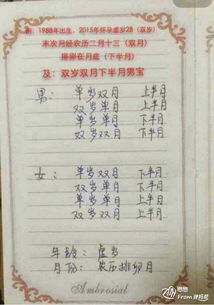 例：1988年出生，2015年怀孕虚岁28（双岁）
末次月经农历二月十三（双月）
排卵在月底（下半月）
及：双岁双月下半月男宝
男：单岁双月 上半月
双岁单月 上半月
单岁单月 下半月
双岁双月 下半月
女：单岁双月 下半月
双岁单月 下半月
单岁单月 上半月
双岁双月 上半月
年龄：虚岁
月份：农历排卵月
Ambrosial
From 辣妈帮